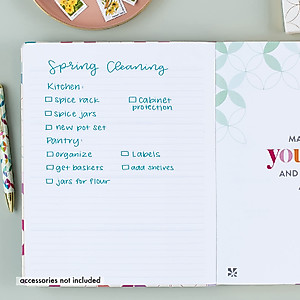 Spring Cleaning
Kitchen:
spice rack
Cabinet
protection
spice jars
new pot set
Pantry:
organize
Labels
get baskets
add shelves
jars for flour
MA
you
AND
accessories not included